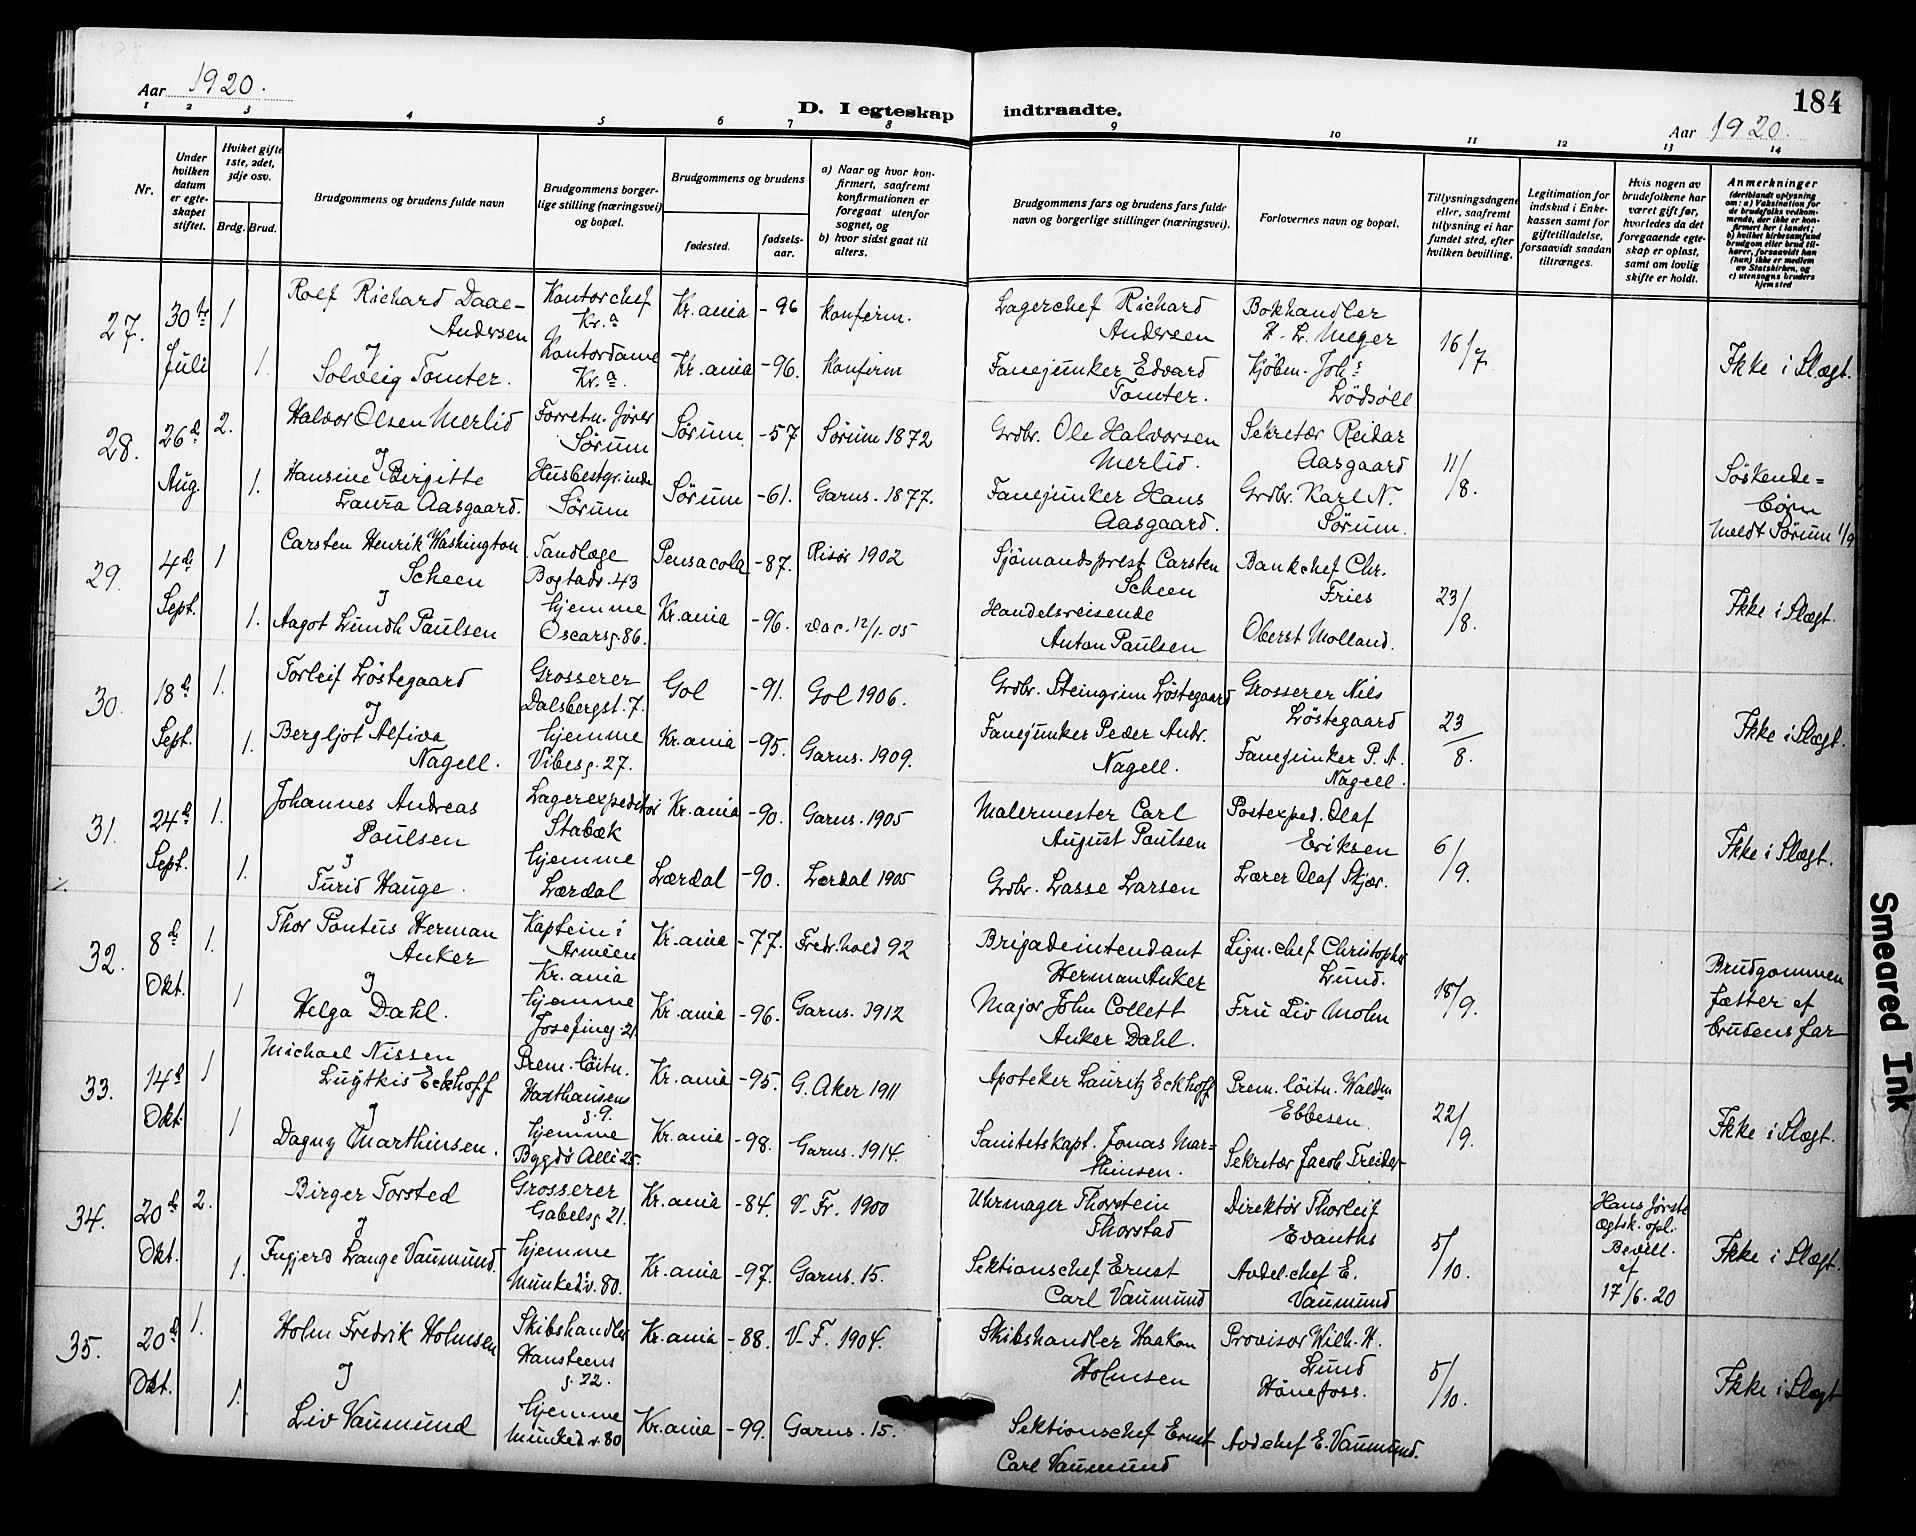 184
Aar 1920.
D. I egteskap indtraadte.
Aar 1920.
1 2 3 4 5 6 7 8 9 10 11 12 13 14
Nr.
Under hvilken datum er egteskapet stiftet.
Hviket gifte 1ste, 2det, 3dje osv.
Brdg. Brud.
Brudgommens og brudens fulde navn
Brudgommens borgerlige stilling (næringsvei) og bopæl.
Brudgommens og brudens
fødested.
fødselsaar.
a) Naar og hvor konfirmert, saafremt konfirmationen er foregaat utenfor sognet, og
b) hvor sidst gaat til alters.
Brudgommens fars og brudens fars fulde navn og borgerlige stillinger (næringsvei).
Forlovernes navn og bopæl.
Tillysningsdagene eller, saafremt tillysning ei har fundet sted, efter hvilken bevilling.
Legitimation for indskud i Enkekassen samt for giftetilladelse, forsaavidt saadan tiltrænges.
Hvis nogen av brudefolkene har været gift før, hvorledes da det foregaaende egteskap er opløst, samt om lovlig skifte er holdt.
Anmerkninger
(deriblandt oplysning om: a) Vaksination for de brudefolks vedkommende, der ikke er konfirmert her i landet; b) hvilket kirkesamfund brudgom eller brud tilhører, forsaavidt han (hun) ikke er medlem av Statskirken, og c) utensogns bruders hjemsted
27. 30te Juli 1 Rolf Richard Daae-Andersen Kontorchef Kr.a Kr.ania -96 Konfirm. Lagerchef Richard Andersen Bokhandler H. L. Meger 16/7 Ikke i Slægt.
og
1. Solveig Tomter. Kontordame Kr.a. Kr.ania -96. Konfirm Fanejunker Edvard Tomter. Kjøbm. Joh.s Lødsøll
28. 26d Aug. 2. Halvor Olsen Merlid Forretn. fører Sørum Sørum -57 Sørum 1872 Grdbr. Ole Halvorsen Merlid. Sekretær Reidar Aasgaard 11/8. Søskendebørn
Meldt Sørum 1/9
og
1. Hansine Birgitte Laura Aasgaard. Husbestyrinde Sørum Sørum -61. Garns. 1877. Fanejunker Hans Aasgaard. Grdbr. Karl N. Sørum.
29. 4de Sept. 1 Carsten Henrik Washington Scheen Tandlæge Bogtadv. 43 Pensacola -87. Risør 1902 Sjømandsprest Carsten Scheen Bankchef Chr. Fries 23/8. Ikke i Slægt.
og
1. Aagot Lundh Paulsen hjemme Oscarsg. 86. Kr.ania -96. vac. 12/1. 05 Handelsreisende Anton Paulsen Oberst Molland.
30. 18d Sept. 1. Torleif Løstegaard Grosserer Dalsbergst. 7. Gol -91. Gol 1906. Grdbr. Steingrim Løstegaard Grosserer Nils Løstegaard 23/8. Ikke i Slægt.
og
1. Bergljot Alfiva Nagell. hjemme Vibesg. 27. Kr.ania -95. Garns. 1909. Fanejunker Peder Andr. Nagell. Fanejunker P. A. Nagell.
31. 24d Sept. 1. Johannes Andreas Paulsen Lagerexpeditør Stabæk Kr.ania -90. Garns. 1905 Malermester Carl August Paulsen Postexped. Olaf Eriksen 6/9. Ikke i Slægt.
og
1. Turid Hauge. hjemme Lærdal Lærdal -90. Lærdal 1905 Grdbr. Lasse Larsen Lærer Olaf Skjær.
32. 8d Okt. 1. Thor Pontus Herman Anker Kaptein i Armeen Kr.ania Kr.ania -77. Fredr.hald 92 Brigadeintendant Herman Anker Lign. chef Christopher Lund. 18/9. Brudgommen fætter af brudens far
og
1 Helga Dahl. hjemme Josefineg 21 Kr.ania -96. Garns. 1912 Major John Collett Anker Dahl. Fru Liv Mohn
33. 14d Okt. 1 Michael Nissen Luytkis Eckhoff Prem. løitn. Haxthausens g. 9. Kr.ania -95. G. Aker 1911 Apoteker Lauritz Eckhoff Prem. løitn. Waldm Ebbesen. 22/9. Ikke i Slægt.
og
1 Dagny Marthinsen. hjemme Bygdø Allé 25. Kr.ania -98. Garns. 1914. Sanitetskapt. Jonas Marthinsen. Sekretær Jacob Treider
34. 20d Okt. 2. Birger Torsted Grosserer Gabelsg 21. Kr.ania -84. V. Fr. 1900 Uhrmager Thorstein Thorstad Direktør Thorleif Evanths 5/10. Hans første ægtsk. opl. Bevill. af 17/6. 20 Ikke i Slægt.
og
1. Ingjerd Lange Vaumund. hjemme Munked.v. 80. Kr.ania -97. Garns. 15. Sektionschef Ernst Carl Vaumund Avdel.chef E. Vaumund
35. 20d Okt. 1. Holm Fredrik Holmsen Skibshandler Hansteens g. 22. Kr.ania -88. V. F. 1904. Skibshandler Haakon Holmsen Provisor Wilh. H. Lund Hønefoss. 5/10. Ikke i Slægt
og
1. Liv Vaumund hjemme Munked.v. 80 Kr.ania -99. Garns. 15. Sektionschef Ernst Carl Vaumund Avdchef E. Vaumund.
Smeared Ink